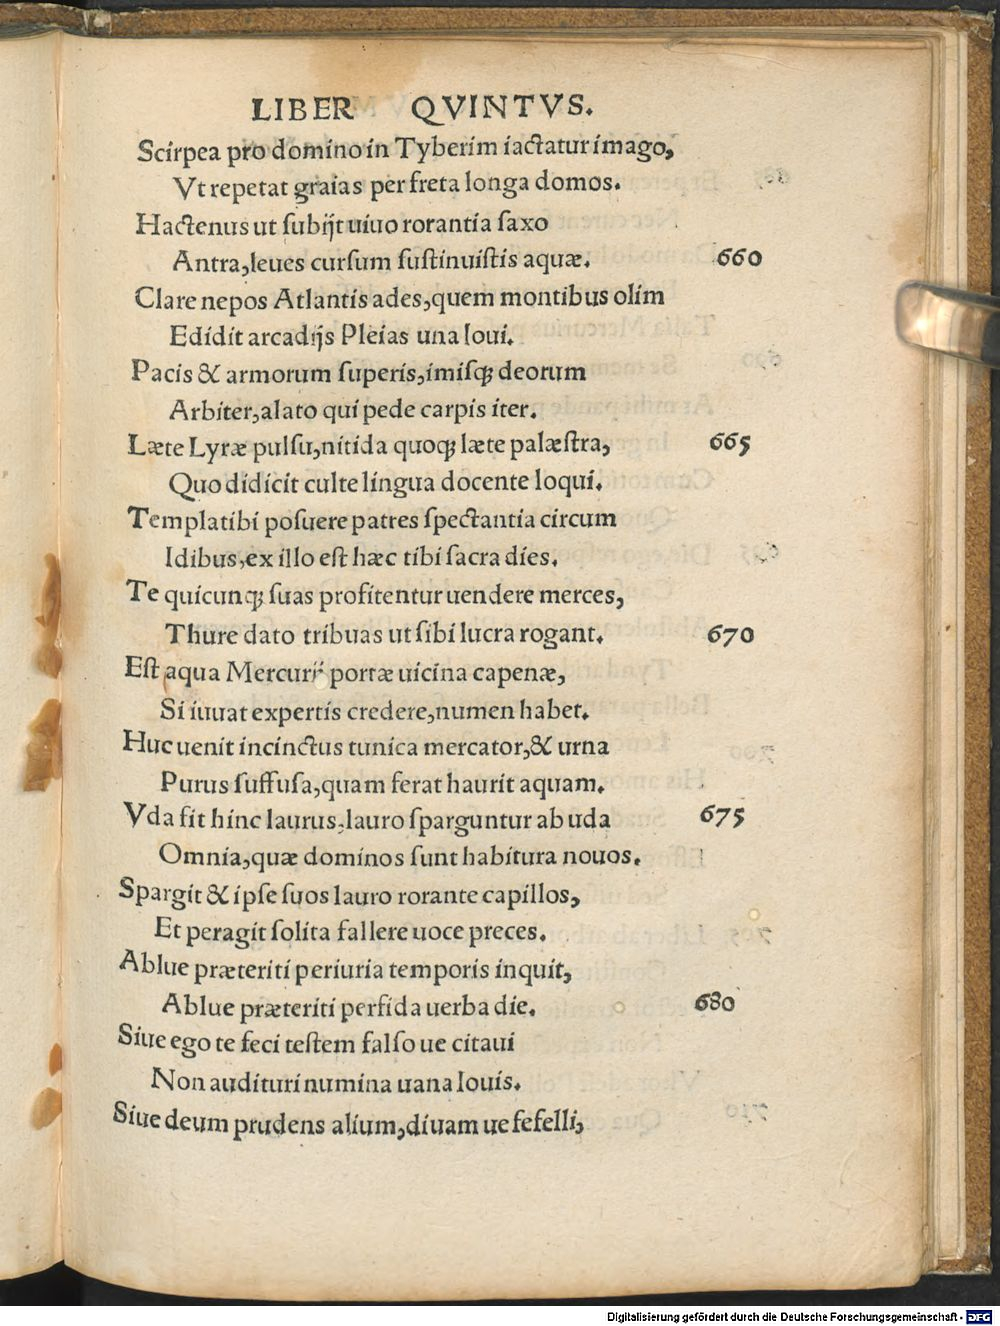 LIBER QVINTVS.
Scirpea pro domino in Tyberim iactatur imago,
Vt repetat graias per freta longa domos.
Hactenus ut subijt uiuo rorantia saxo
Antra, leues cursum sustinuistis aquæ. 660
Clare nepos Atlantis ades, quem montibus olim
Edidit arcadijs Pleias una Ioui.
Pacis & armorum superis, imisq; deorum
Arbiter, alato qui pede carpis iter.
Læte Lyræ pulsu, nitida quoq; læte palæstra, 665
Quo didicit culte lingua docente loqui.
Templa tibi posuere patres spectantia circum
Idibus, ex illo est hæc tibi sacra dies.
Te quicunq; suas profitentur uendere merces,
Thure dato tribuas ut sibi lucra rogant. 670
Est aqua Mercurij portæ uicina capenæ,
Si iuuat expertis credere, numen habet.
Huc uenit incinctus tunica mercator, & urna
Purus suffusa, quam ferat haurit aquam.
Vda fit hinc laurus, lauro sparguntur ab uda 675
Omnia, quæ dominos sunt habitura nouos.
Spargit & ipse suos lauro rorante capillos,
Et peragit solita fallere uoce preces.
Ablue præteriti periuria temporis inquit,
Ablue præteriti perfida uerba die. 680
Siue ego te feci testem falso ue citaui
Non audituri numina uana Iouis.
Siue deum prudens alium, diuam ue fefelli,
Digitalisierung gefördert durch die Deutsche Forschungsgemeinschaft - DFG